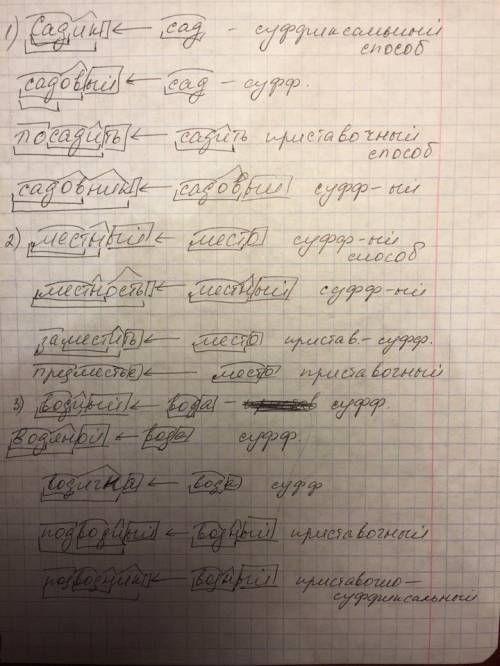 1) садик ← сад - суффиксальный
способ
садовый ← сад - суфф.
посадить ← садить приставочный
способ
садовник ← садовый суфф-ый
2) местный ← место суфф-ый
способ
местность ← местный суфф-ый
заместить ← место пристав.-суфф.
предместье ← место приставочный
3) водный ← вода - суфф.
водяной ← вода суфф.
водичка ← вода суфф
подводный ← водный приставочный
подводник ← водный приставочно-
суффиксальный